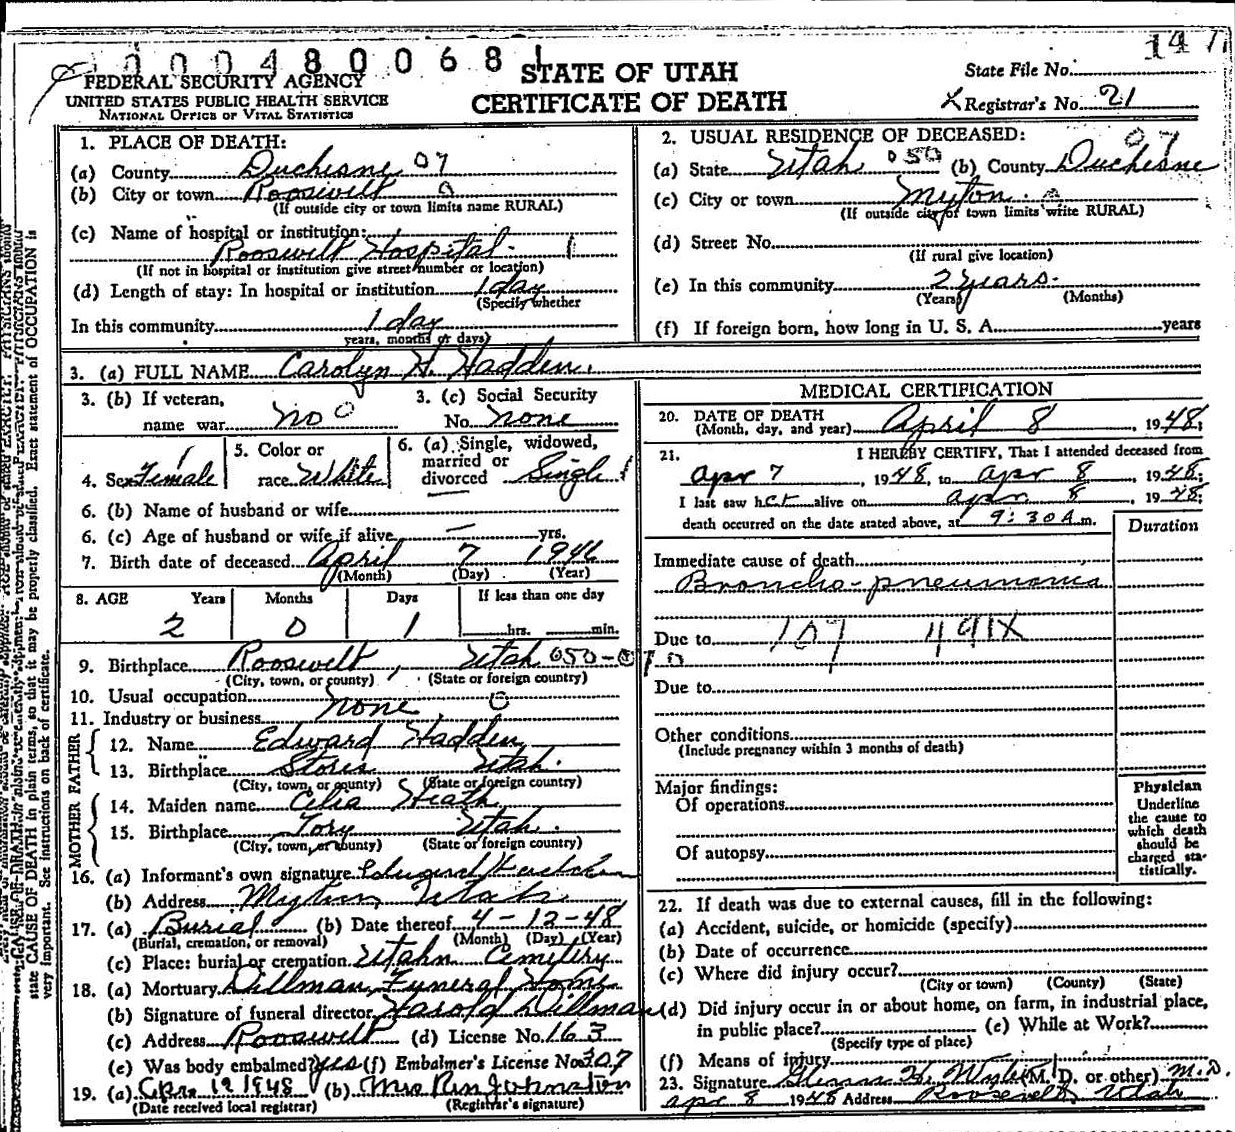 000480068 1
14
FEDERAL SECURITY AGENCY
UNITED STATES PUBLIC HEALTH SERVICE
NATIONAL OFFICE OF VITAL STATISTICS
STATE OF UTAH
CERTIFICATE OF DEATH
State File No.
X Registrar's No. 21
1. PLACE OF DEATH:
(a) County Duchesne 07
(b) City or town Roosevelt 0
(If outside city or town limits name RURAL)
(c) Name of hospital or institution:
Roosevelt Hospital 1
(If not in hospital or institution give street number or location)
(d) Length of stay: In hospital or institution 1 day
(Specify whether
In this community 1 day
years, months or days)
2. USUAL RESIDENCE OF DECEASED:
07
(a) State Utah 050 (b) County Duchesne
(c) City or town Myton
(If outside city or town limits write RURAL)
(d) Street No.
(If rural give location)
(e) In this community 2 years
(Years) (Months)
(f) If foreign born, how long in U. S. A. years
3. (a) FULL NAME Carolyn H. Hadden.
3. (b) If veteran, name war no 0
3. (c) Social Security No. none
4. Sex Female 1
5. Color or race White
6. (a) Single, widowed, married or divorced Single
6. (b) Name of husband or wife
6. (c) Age of husband or wife if alive — yrs.
7. Birth date of deceased April 7 1946
(Month) (Day) (Year)
8. AGE Years Months Days If less than one day
2 0 1 hrs. min.
9. Birthplace Roosevelt, Utah 050-0
(City, town, or county) (State or foreign country)
10. Usual occupation none 0
11. Industry or business
FATHER
12. Name Edward Hadden
13. Birthplace Utah.
(City, town, or county) (State or foreign country)
MOTHER
14. Maiden name Celia Heath
15. Birthplace Utah.
(City, town, or county) (State or foreign country)
16. (a) Informant's own signature Edward Hadden
(b) Address Myton Utah
17. (a) Burial (b) Date thereof 4-12-48
(Burial, cremation, or removal) (Month) (Day) (Year)
(c) Place: burial or cremation Utahn Cemetery
18. (a) Mortuary Dillman Funeral Home
(b) Signature of funeral director Harold Dillman
(c) Address Roosevelt (d) License No. 163
(e) Was body embalmed? yes (f) Embalmer's License No. 307
19. (a) Apr. 12 1948 (b) Mrs Johnston
(Date received local registrar) (Registrar's signature)
MEDICAL CERTIFICATION
20. DATE OF DEATH
(Month, day, and year) April 8, 1948;
21. I HEREBY CERTIFY, That I attended deceased from
Apr 7, 1948, to Apr 8, 1948;
I last saw her alive on Apr 8, 1948;
death occurred on the date stated above, at 9:30 A.m.
Duration
Immediate cause of death
Broncho-pneumonia
Due to 107 491X
Due to
Other conditions
(Include pregnancy within 3 months of death)
Major findings:
Of operations
Of autopsy
Physician
Underline
the cause to
which death
should be
charged sta-
tistically.
22. If death was due to external causes, fill in the following:
(a) Accident, suicide, or homicide (specify)
(b) Date of occurrence
(c) Where did injury occur?
(City or town) (County) (State)
(d) Did injury occur in or about home, on farm, in industrial place,
in public place? (e) While at Work?
(Specify type of place)
(f) Means of injury
23. Signature (M. D. or other) M.D.
Apr 8 1948 Address Roosevelt, Utah
state CAUSE OF DEATH in plain terms, so that it may be properly classified. Exact statement of OCCUPATION is
very important. See instructions on back of certificate.